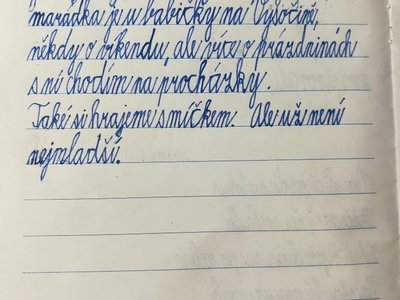 marádka je u babičky na Vysočině,
někdy o víkendu, ale více o prázdninách
s ní chodím na procházky.
Také si hrajeme s míčkem. Ale už není
nejmladší.